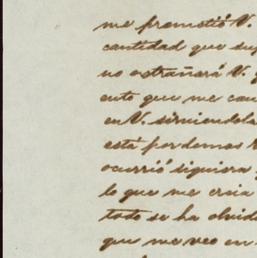 me prometió V.
cantidad que sup
no extrañará V. q
ento que me cau
en V. sirviendola
está por demas
ocurrió siquiera
lo que me creia
todo se ha olvid
que me veo en